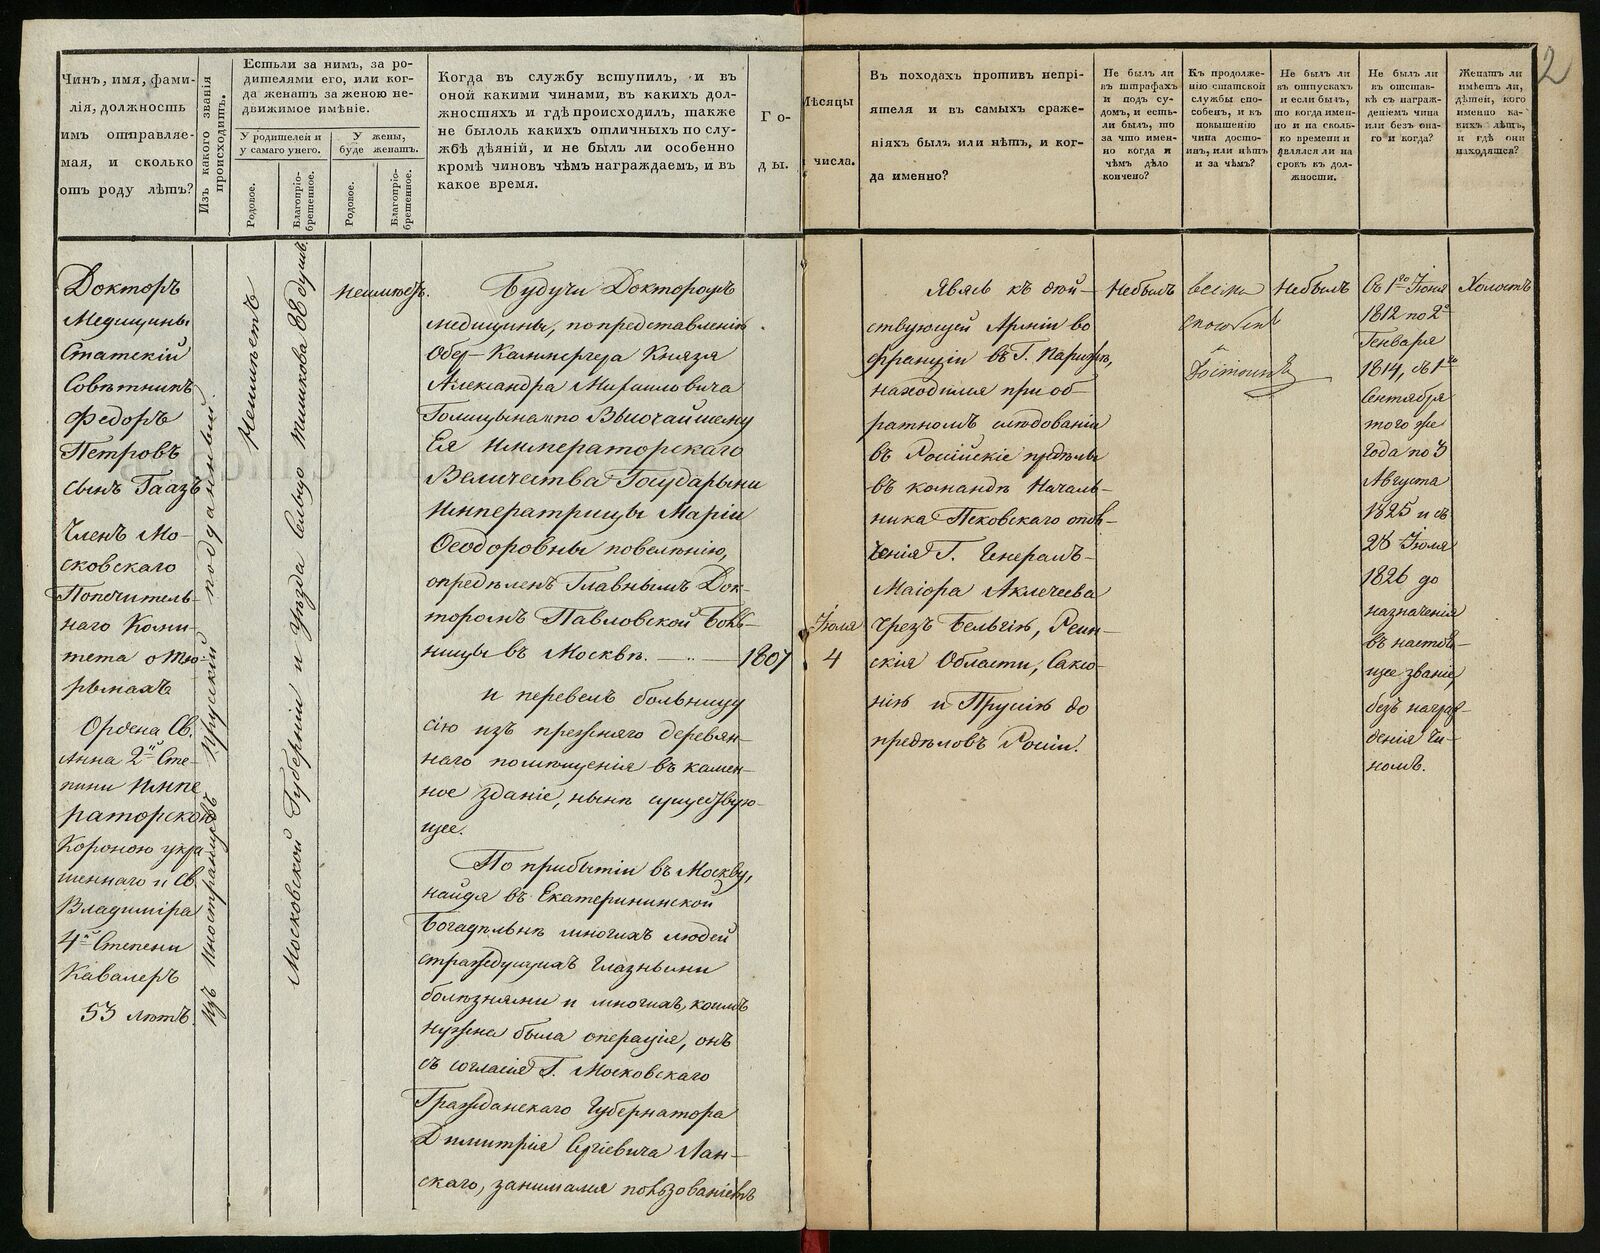 2
Чинъ, имя, фами-
лія, должность
имъ отправляе-
мая, и сколько
отъ роду лѣтъ?
Изъ какого званія
происходитъ.
Естьли за нимъ, за ро-
дителями его, или ког-
да женатъ за женою не-
движимое имѣніе.
У родителей и
у самаго унего.
У жены,
буде женатъ.
Родовое.
Благопріо-
брѣтенное.
Родовое.
Благопріо-
брѣтенное.
Когда въ службу вступилъ, и въ
оной какими чинами, въ какихъ дол-
жностяхъ и гдѣ происходилъ, также
не былоль какихъ отличныхъ по слу-
жбѣ дѣяній, и не былъ ли особенно
кромѣ чиновъ чѣмъ награждаемъ, и въ
какое время.
Го-
ды.
Мѣсяцы
числа.
Въ походахъ противъ непрі-
ятеля и въ самыхъ сраже-
ніяхъ былъ или нѣтъ, и ког-
да именно?
Не былъ ли
въ штрафахъ
и подъ су-
домъ, и есть-
ли былъ, то
за что имен-
но когда и
чѣмъ дѣло
кончено?
Къ продолже-
нію статской
службы спо-
собенъ, и къ
повышенію
чина досто-
инъ, или нѣтъ
и за чѣмъ?
Не былъ ли
въ отпускахъ
и если былъ,
то когда имен-
но и на сколь-
ко времени и
являлся ли на
срокъ къ дол-
жности.
Не былъ ли
въ отстав-
кѣ съ награж-
деніемъ чина
или безъ она-
го и когда?
Женатъ ли
имѣетъ ли,
дѣтей, кого
именно ка-
кихъ лѣтъ,
и гдѣ они
находятся?
Докторъ
Медицины
Статскій
Совѣтникъ
Федоръ
Петровъ
сынъ Гаазъ
Членъ Мо-
сковскаго
Попечитель-
наго Коми-
тета о тю-
рьмахъ
Ордена Св.
Анны 2й Сте-
пени Импе
раторскою
Короною укра-
шеннаго и Св.
Владиміра
4й Степени
Кавалеръ
53 лѣтъ.
Изъ иностранцевъ Прусскій подданный.
Неимѣетъ
Московской Губерніи и уѣзда сельцо Тишково 88 душъ.
неимѣетъ.
Будучи Докторомъ
медицины, по представленію
Обер-Каммергера Князя
Александра Михайловича
Голицына и по Высочайшему
Ея Императорскаго
Величества Государыни
Императрицы Маріи
Ѳеодоровны повелѣнію,
опредѣленъ Главнымъ Док-
торомъ Павловской Боль-
ницы въ Москвѣ. — 1807 Іюля 4
и перевелъ больницу
сію изъ прежняго деревян-
наго помѣщенія въ камен-
ное зданіе, нынѣ существую-
щее.
По прибытіи въ Москву,
найдя въ Екатерининской
Богадѣльнѣ многихъ людей
страждущихъ глазными
болѣзнями и многихъ, коимъ
нужна была операція, онъ
съ согласія Г. Московскаго
Гражданскаго Губернатора
Димитрія Сергіевича Лан-
скаго, занимался пользованіемъ
Явясь къ дѣй-
ствующей Арміи во
Франціи въ Г. Парижѣ,
находился при об
ратномъ слѣдованіи
въ Россійскіе предѣлы
въ командѣ Началь-
ника Псковскаго опол-
ченія Г. Генералъ-
Маіора Аклечеева
чрезъ Бельгію, Реин-
скія Области, Саксо-
нію и Пруссію до
предѣловъ Россіи.
Небылъ
весьма
способенъ
и
Достоинъ
Небылъ
Съ 1го Іюня
1812 по 2е
Генваря
1814, съ 1го
Сентября
того же
года по 3
Августа
1825 и съ
28 Іюля
1826 до
назначенія
въ настоя-
щее званіе,
безъ награж-
денія чи-
номъ.
Холостъ